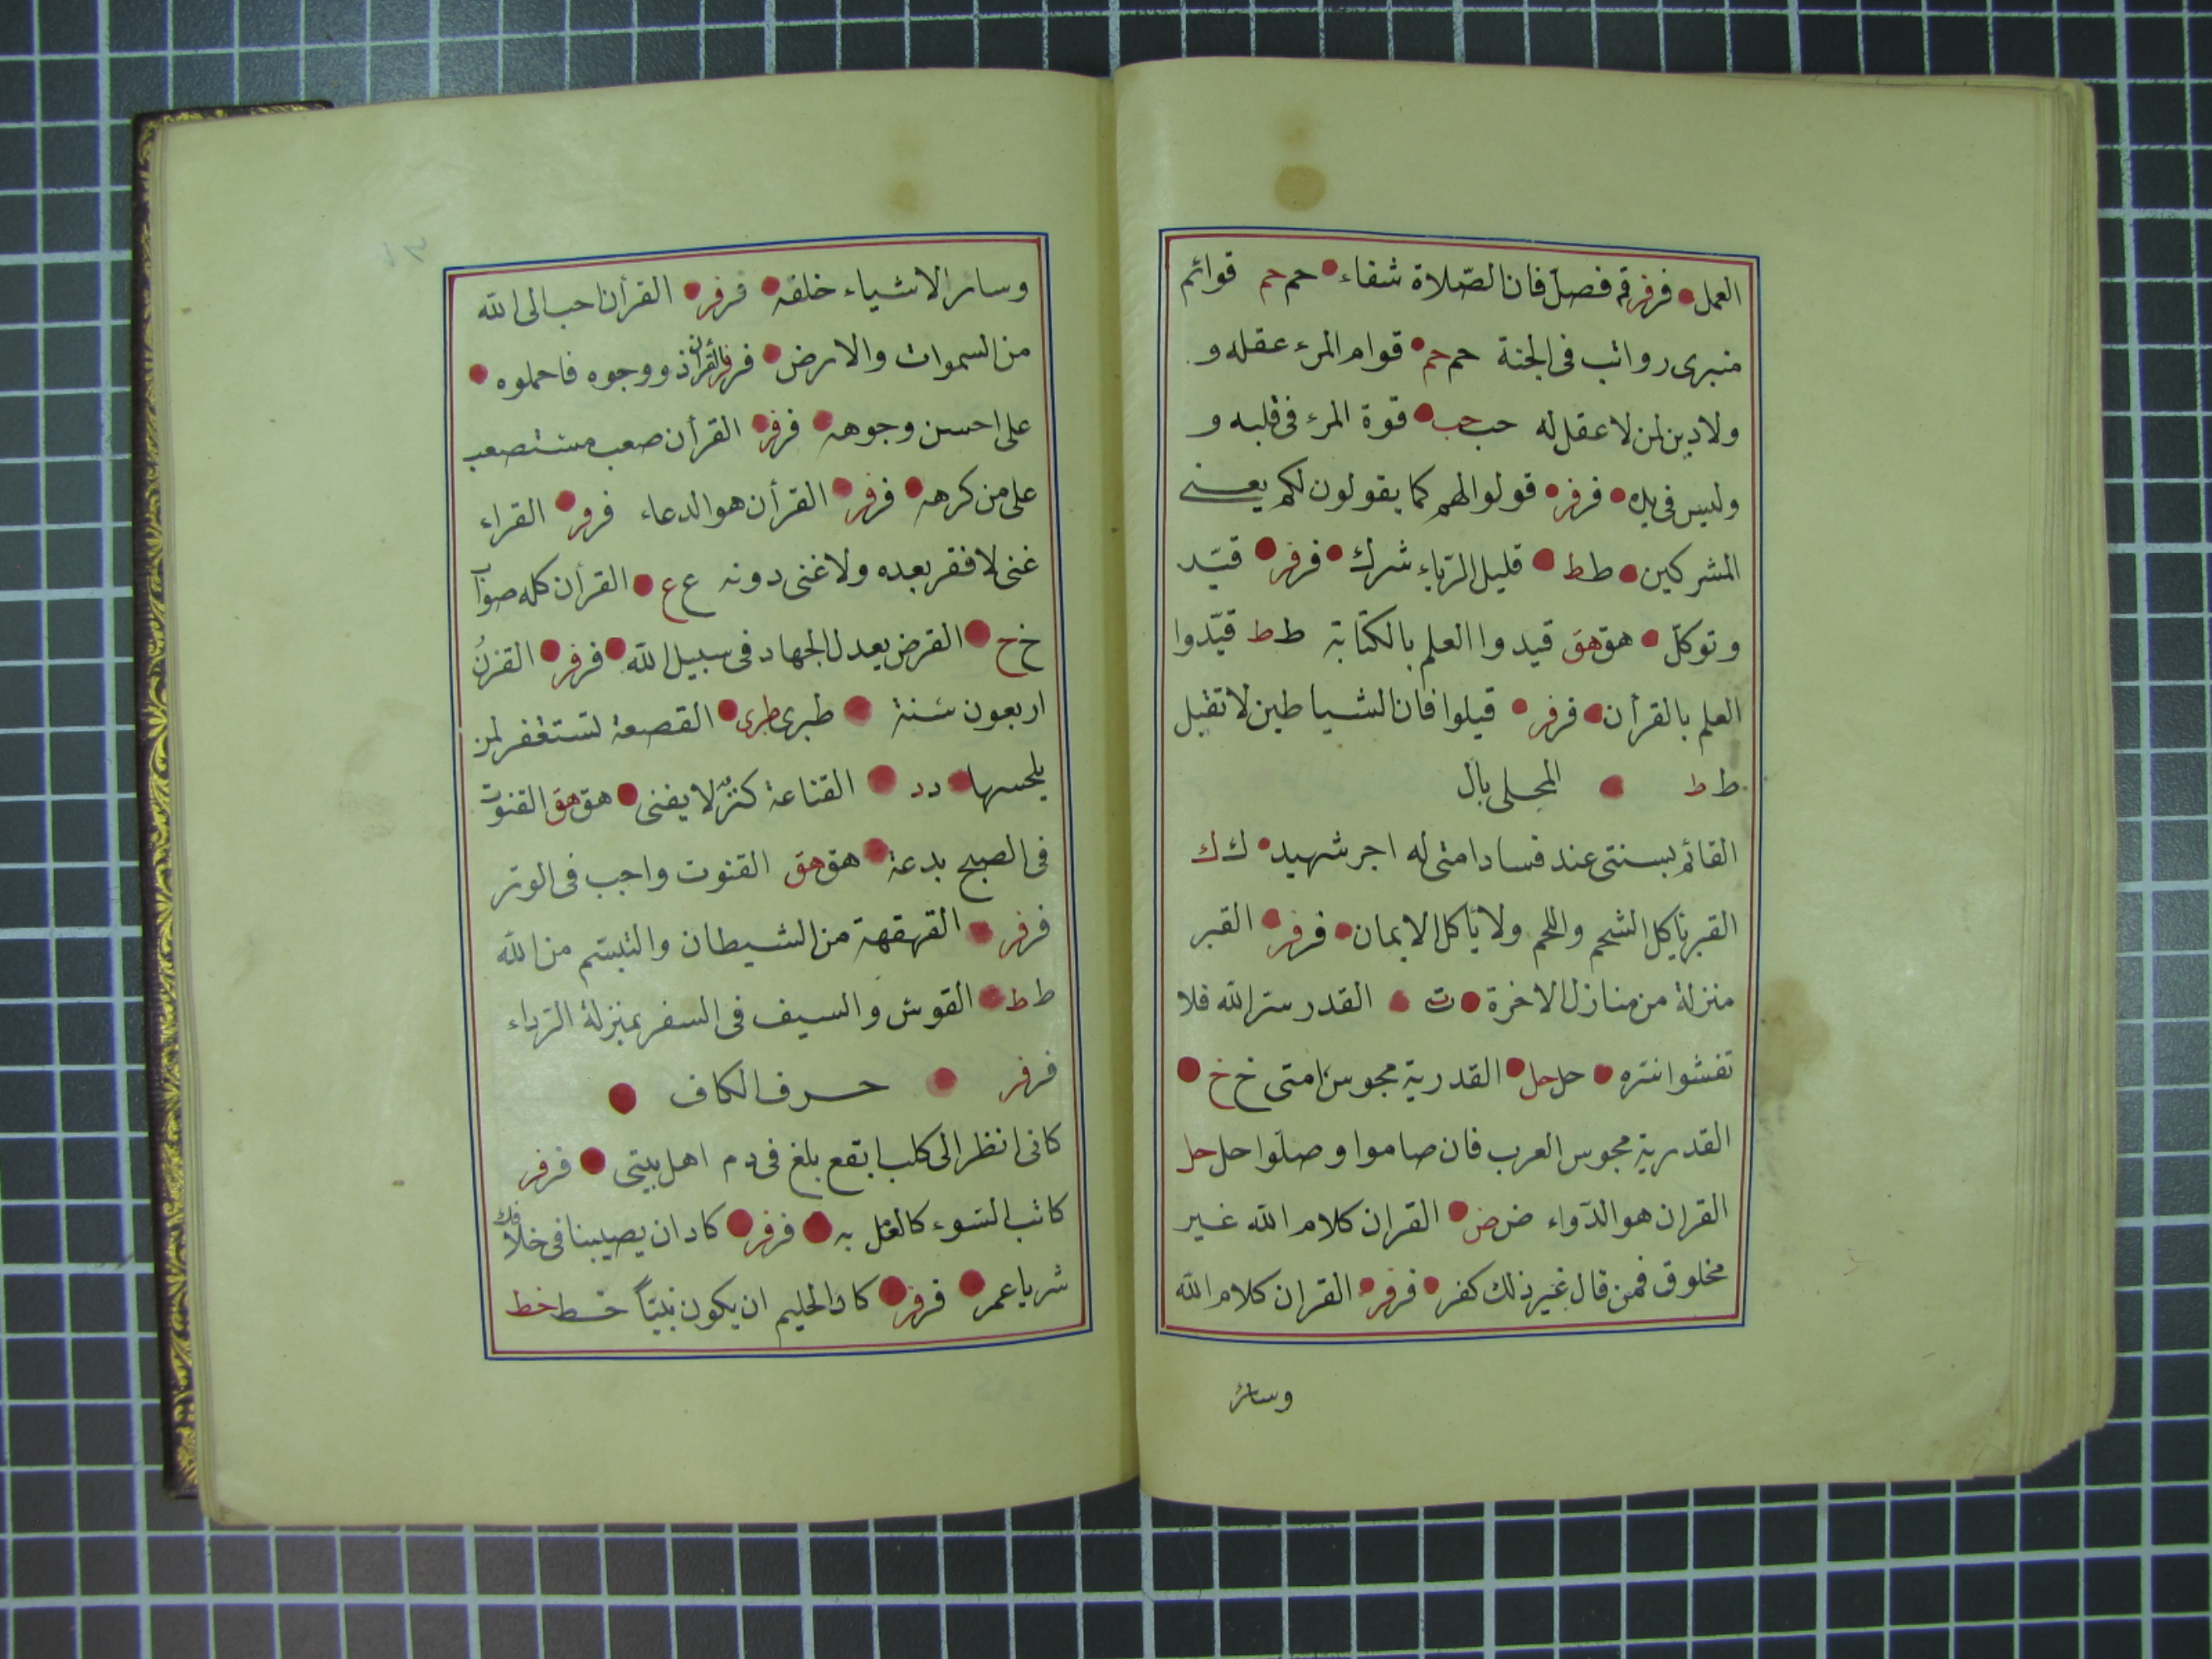 العمل فر فر قم فصل فان الصّلاة شفاء حم حم قوائم
منبرى رواتب فى الجنة حم حم قوام المرء عقله و
ولا دين لمن لا عقل له حب حب قوة المرء فى قلبه و
وليس فى يده فر فر قولوا لهم كما يقولون لكم يعنى
المشركين ط ط قليل الرّياء شرك فر فر قيّد
وتوكّل هق هق قيدوا العلم بالكتابة ط ط قيّدوا
العلم بالقرأن فر فر قيلوا فان الشياطين لا تقيل
ط ط المحلى بال
القائم بسنتى عند فساد امتى له اجر شهيد ك ك
القبر يأكل الشحم واللحم ولا يأكل الايمان فر فر القبر
منزلة من منازل الاخرة ت القدر سرّ الله فلا
تفشوا سّره حل حل القدرية مجوس امتى خ خ
القدرية مجوس العرب فان صاموا وصلّوا حل حل
القران هو الدّواء ض ض القران كلام الله غير
مخلوق فمن قال غير ذلك كفر فر فر القران كلام الله
وسائر
وسائر الاشياء خلقه فر فر القرأن احب الى الله
من السموات والارض فر فر القرأن ذو وجوه فاحملوه
على احسن وجوهه فر فر القرأن صعب مستصعب
على من كرهه فر فر القرأن هو الدعاء فر فر القراء
غنى لا فقر بعده ولا غنى دونه ع ع القرأن كله صواب
خ خ القرض يعدل الجهاد فى سبيل الله فر فر القرنُ
اربعون سَنة طبرى طبرى القصعة تستغفر لمن
يلحسها د د القناعة كنزٌ لا يفنى هق هق القنوت
فى الصبح بدعة هق هق القنوت واجب فى الوتر
فر فر القهقهة من الشيطان والتبسّم من الله
ط ط القوس والسيف فى السفر بمنزلة الرّداء
فر فر حرف الكاف
كانى انظر الى كلب ابقع يلغ فى دم اهل بيتى فر فر
كاتب السّوء كالعمل به فر فر كاد ان يصيبنا فى خلافك
شر يا عمر فر فر كاد الحليم ان يكون نبيّاً خط خط